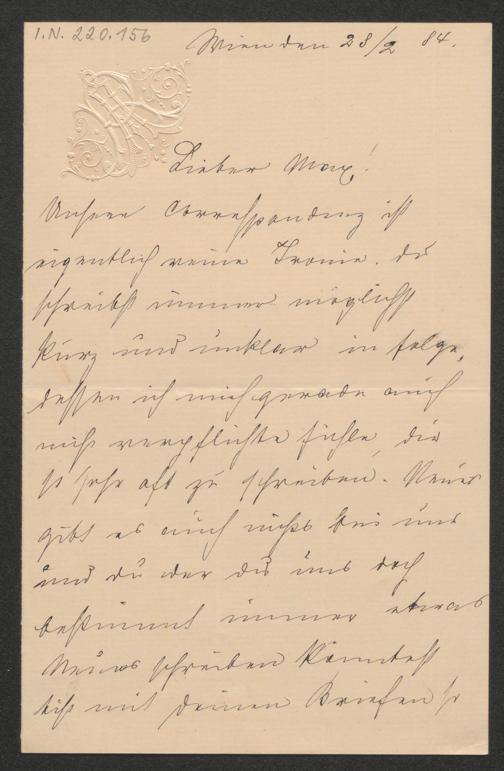 I.N. 220.156
Wien den 28/2 84.
Lieber Max!
Unsere Correspondenz ist
eigentlich reine Ironie. Du
schreibst immer möglichst
kurz und unklar in folge,
dessen ich mich gerade auch
nicht verpflichte fühle, dir
so sehr oft zu schreiben. Neues
gibt es auch nichts bei uns
und du der du uns doch
bestimmt immer etwas
Neues schreiben könntest
bist mit deinen Briefen so